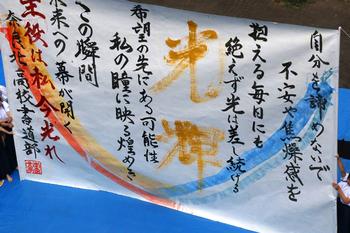 自分を諦めないで
不安や焦燥感を
抱える毎日にも
絶えず光は差し続ける
光輝
希望の先にある可能性
私の瞳に映る煌めき
この瞬間
未来への幕が開く
主役は私 今光れ
奈良北高校書道部